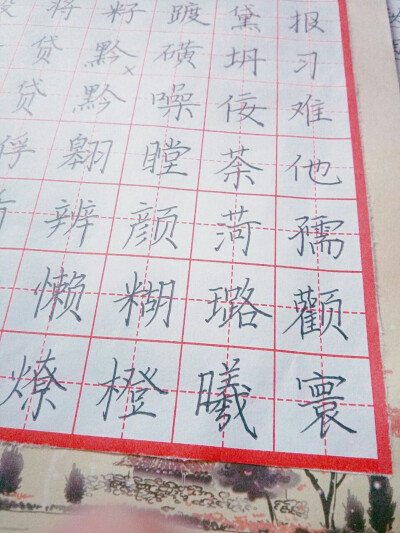 籽踱黛报
贷黔磺坍习
贷黔噪佞难
俘翱瞠茶他
辨颜孺
懒糊璐颧
燎橙曦寰